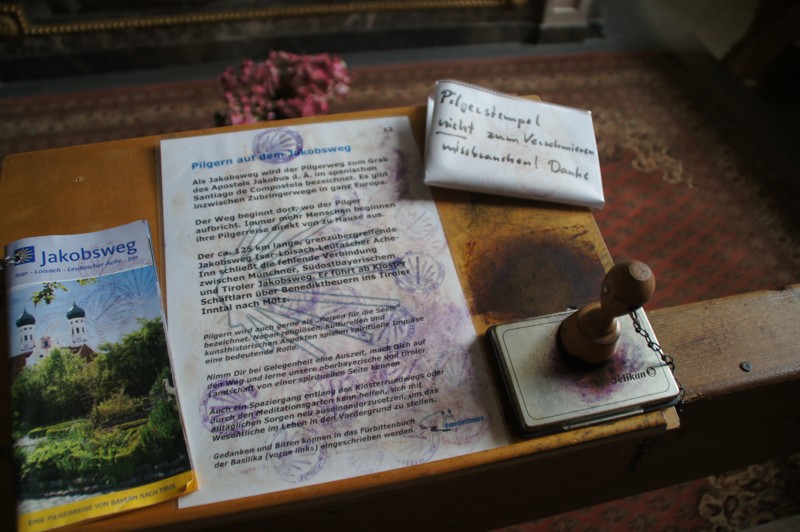 Jakobsweg
Isar - Loisach - Leutascher Ache - Inn
EINE PILGERREISE VON BAYERN NACH TIROL
Pilgern auf dem Jakobsweg
Als Jakobsweg wird der Pilgerweg zum Grab
des Apostels Jakobus d. Ä. im spanischen
Santiago de Compostela bezeichnet. Es gibt
inzwischen Zubringerwege in ganz Europa.
Der Weg beginnt dort, wo der Pilger
aufbricht. Immer mehr Menschen beginnen
ihre Pilgerreise direkt von zu Hause aus.
Der ca. 125 km lange, grenzübergreifende
Jakobsweg Isar-Loisach-Leutascher Ache-
Inn schließt die fehlende Verbindung
zwischen Münchner, Südostbayerischem
und Tiroler Jakobsweg. Er führt ab Kloster
Schäftlarn über Benediktbeuern ins Tiroler
Inntal nach Mötz.
Pilgern wird auch gerne als „Reisen für die Seele“
bezeichnet. Neben religiösen, kulturellen und
kunsthistorischen Aspekten spielen spirituelle Impulse
eine bedeutende Rolle.
Nimm Dir bei Gelegenheit eine Auszeit, mach Dich auf
den Weg und lerne unsere oberbayerische und tiroler
Landschaft von einer spirituellen Seite kennen.
Auch ein Spaziergang entlang des Klosterrundwegs oder
durch den Meditationsgarten kann helfen, sich mit
alltäglichen Sorgen neu auseinanderzusetzen, um das
Wesentliche im Leben in den Vordergrund zu stellen.
Gedanken und Bitten können in das Fürbittenbuch
der Basilika (vorne links) eingeschrieben werden.
Pilgerstempel
nicht zum Verschmieren
missbrauchen! Danke
Pelikan